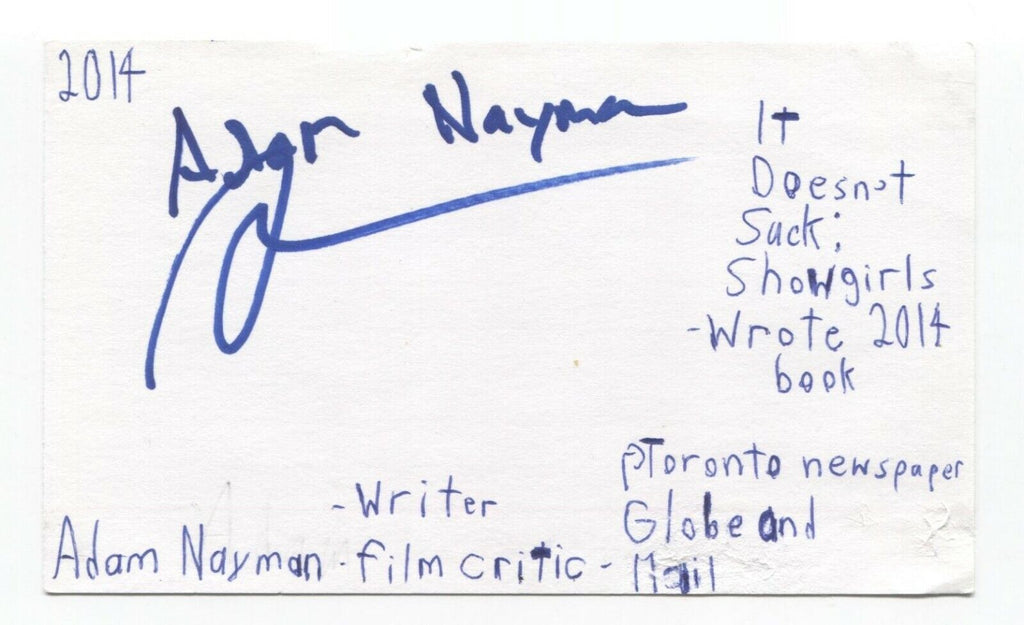 2014
Adam Nayman
It
Doesn't
Suck:
Showgirls
-Wrote 2014
book
-Writer
Adam Nayman - film critic -
Toronto newspaper
Globe and
Mail